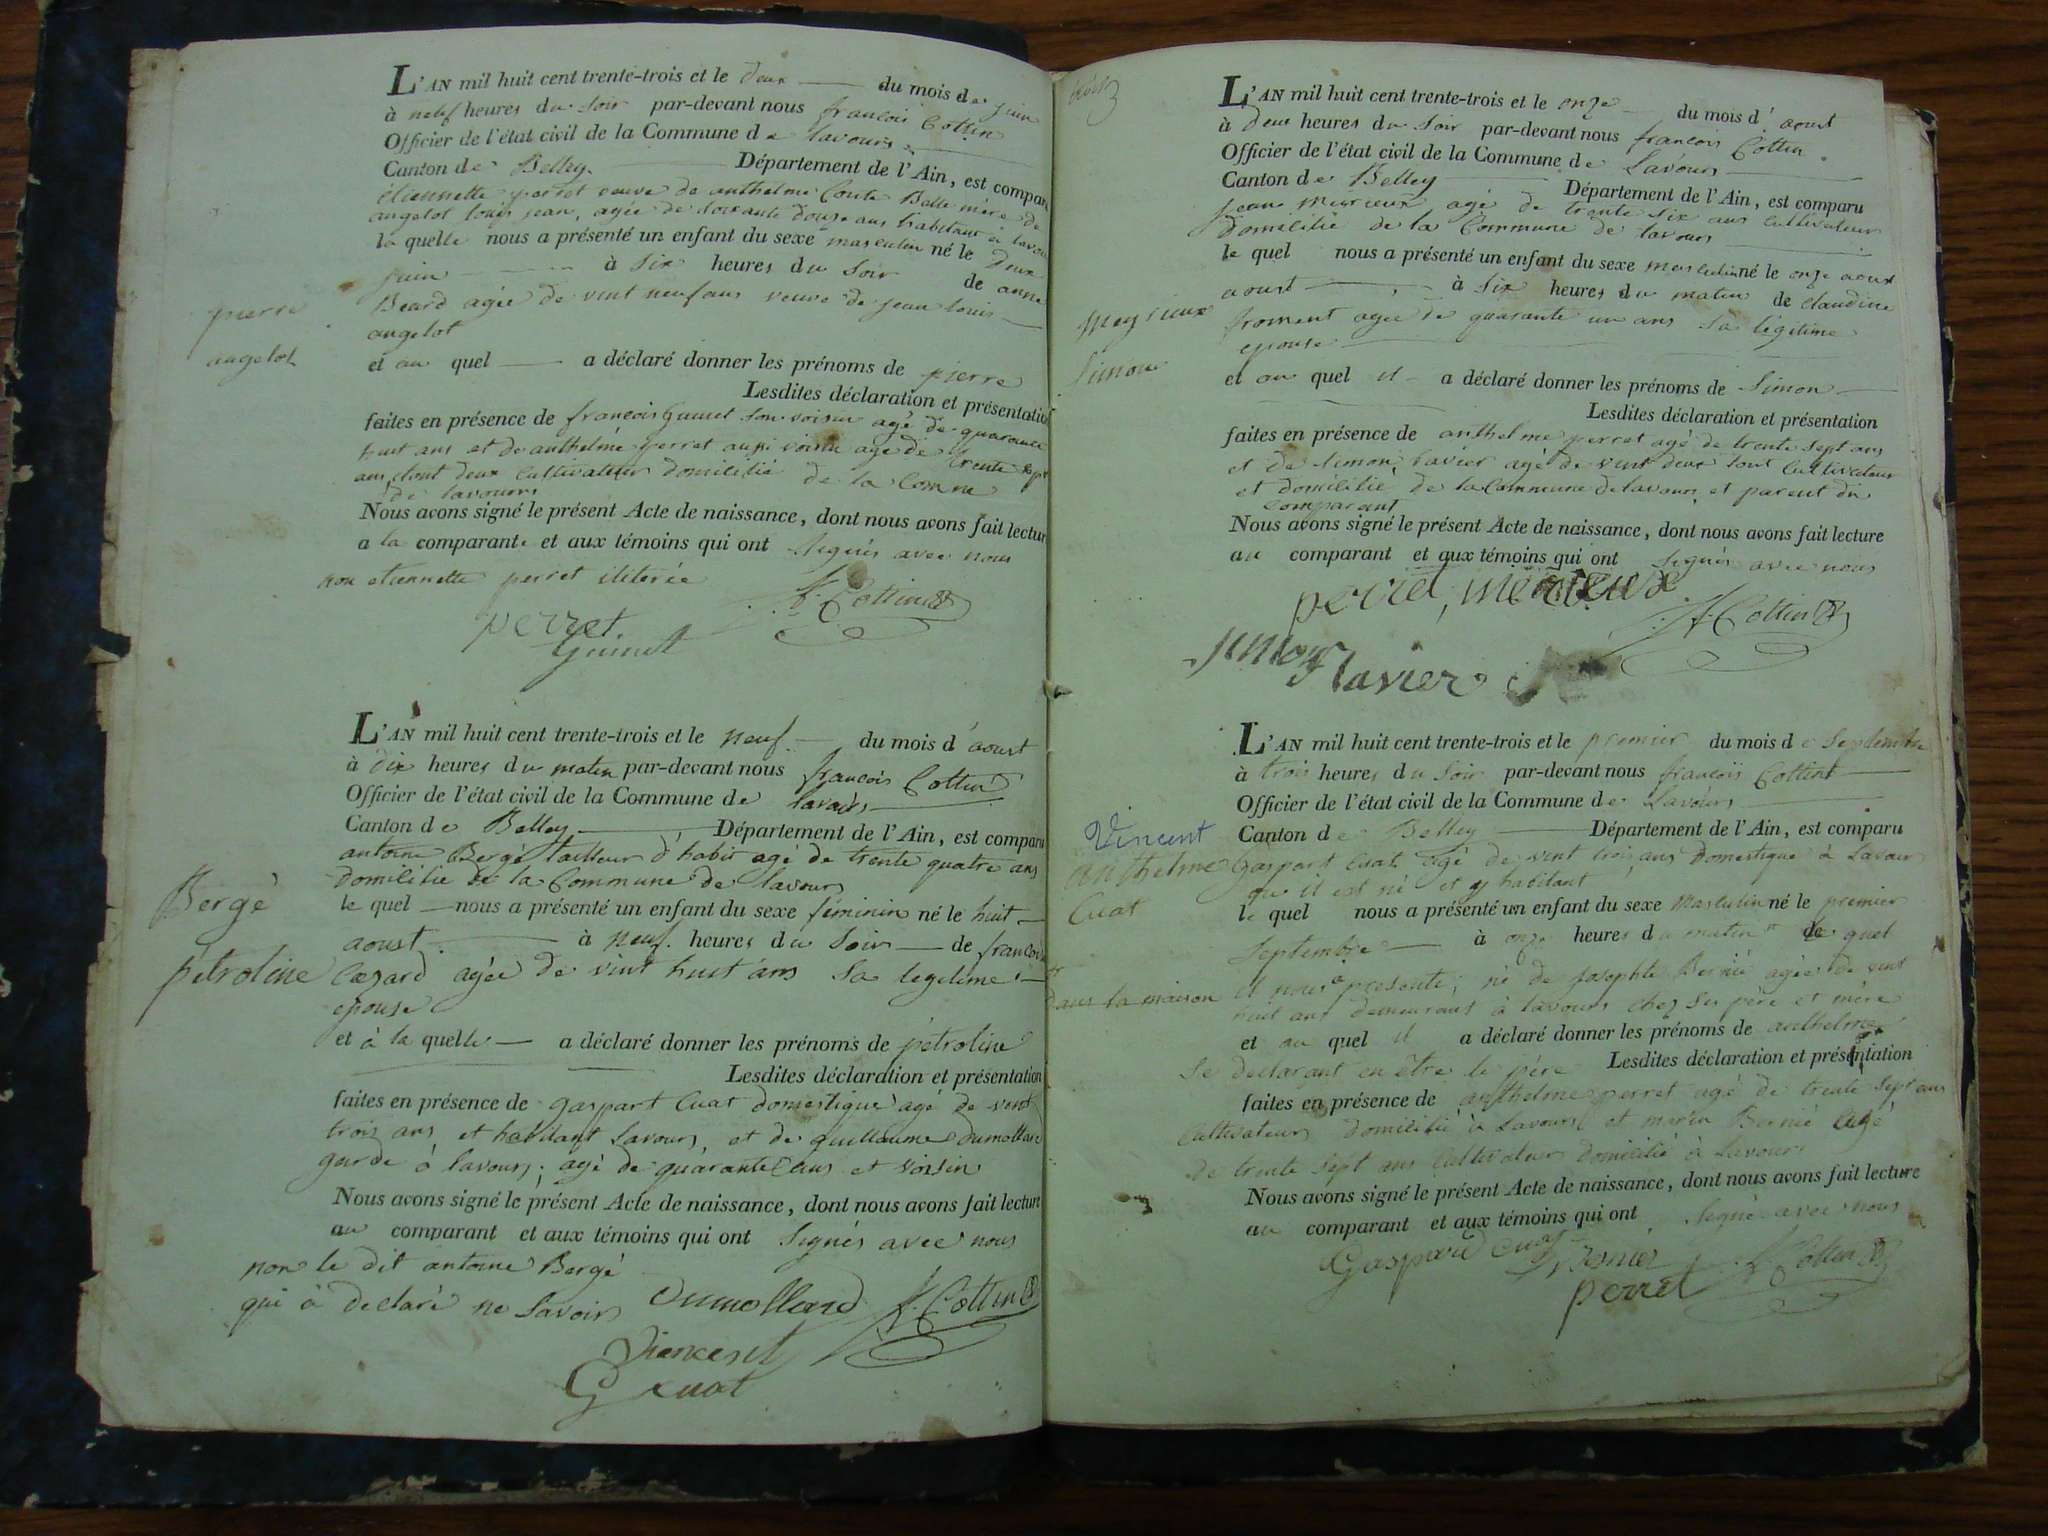 L'AN mil huit cent trente-trois et le deux du mois de juin
à neuf heures du soir par-devant nous francois Cottin
Officier de l'état civil de la Commune de lavours
Canton de Belley Département de l'Ain, est comparu
étiennette perret veuve de anthelme Conte Belle mère de
angelot louis jean, agée de soixante douze ans habitant à lavours
la quelle nous a présenté un enfant du sexe masculin né le deux
juin à six heures du soir de anne
Beard agée de vint neuf ans veuve de jean louis
angelot
pierre
angelot
et au quel a déclaré donner les prénoms de pierre
Lesdites déclaration et présentation
faites en présence de françois Guinet son voisin agé de quarante
huit ans et de anthelme perret aussi voisin agé de trente sept
ans, tout deux Cultivateur domicilié de la Comme
de lavours
Nous avons signé le présent Acte de naissance, dont nous avons fait lecture
a la comparante et aux témoins qui ont signés avec nous
non etiennette perret iliterée
f. Cottin
perret
Guinet
L'AN mil huit cent trente-trois et le neuf du mois d'aoust
à dix heures du matin par-devant nous francois Cottin
Officier de l'état civil de la Commune de lavours
Canton de Belley Département de l'Ain, est comparu
antoine Bergé tailleur d'habit agé de trente quatre ans
domicilié de la Commune de lavours
Bergé
petroline
le quel nous a présenté un enfant du sexe féminin né le huit
aoust à neuf heures du soir de francoise
Cæzard agée de vint huit ans sa legitime
epouse
et à la quelle a déclaré donner les prénoms de pétroline
Lesdites déclaration et présentation
faites en présence de gaspart Cuat domestique agé de vint
trois ans et habitant Lavours, et de guillaume dumollard
garde à lavours, agé de quarante ans et voisin
Nous avons signé le présent Acte de naissance, dont nous avons fait lecture
au comparant et aux témoins qui ont signés avec nous
non le dit antoine Bergé
qui à déclaré ne savoir
Dumollard f. Cottin
G cuat
L'AN mil huit cent trente-trois et le onze du mois d'aoust
à deux heures du soir par-devant nous francois Cottin
Officier de l'état civil de la Commune de Lavours
Canton de Belley Département de l'Ain, est comparu
jean meurieux agé de trente six ans cultivateur
domicilié de la Commune de lavours
le quel nous a présenté un enfant du sexe masculin né le onze aoust
aoust à six heures du matin de claudine
froment agée de quarante un ans sa légitime
epouse
Simon
et au quel il a déclaré donner les prénoms de Simon
Lesdites déclaration et présentation
faites en présence de anthelme perret agé de trente sept ans
et de simon, agé de vint deux tout Cultivateur
et domicilié de la Commune de lavours, et parent du
Comparant
Nous avons signé le présent Acte de naissance, dont nous avons fait lecture
au comparant et aux témoins qui ont signés avec nous
perret, meurieux
f. Cottin
simon
L'AN mil huit cent trente-trois et le premier du mois de Septembre
à trois heures du soir par-devant nous francois Cottin
Officier de l'état civil de la Commune de Lavours
Canton de Belley Département de l'Ain, est comparu
Vincent
anthelme
Cuat
gaspart Cuat agé de vint trois ans domestique à Lavours
ou il est né et y habitant
le quel nous a présenté un enfant du sexe masculin né le premier
Septembre à onze heures du matin le quel
dans la maison
il nous à presenté, né de josephte Bernié agée de vint
huit ans demeurant à lavours chez ses père et mère
et au quel il a déclaré donner les prénoms de anthelme
se declarant en être le père Lesdites déclaration et présentation
faites en présence de anthelme perret agé de trente sept ans
Cultivateur domicilié à Lavours et Bernié agé
de trente sept ans Cultivateur domicilié à Lavours
Nous avons signé le présent Acte de naissance, dont nous avons fait lecture
au comparant et aux témoins qui ont signé avec nous
Gaspard Cuat
f. Cottin
perret